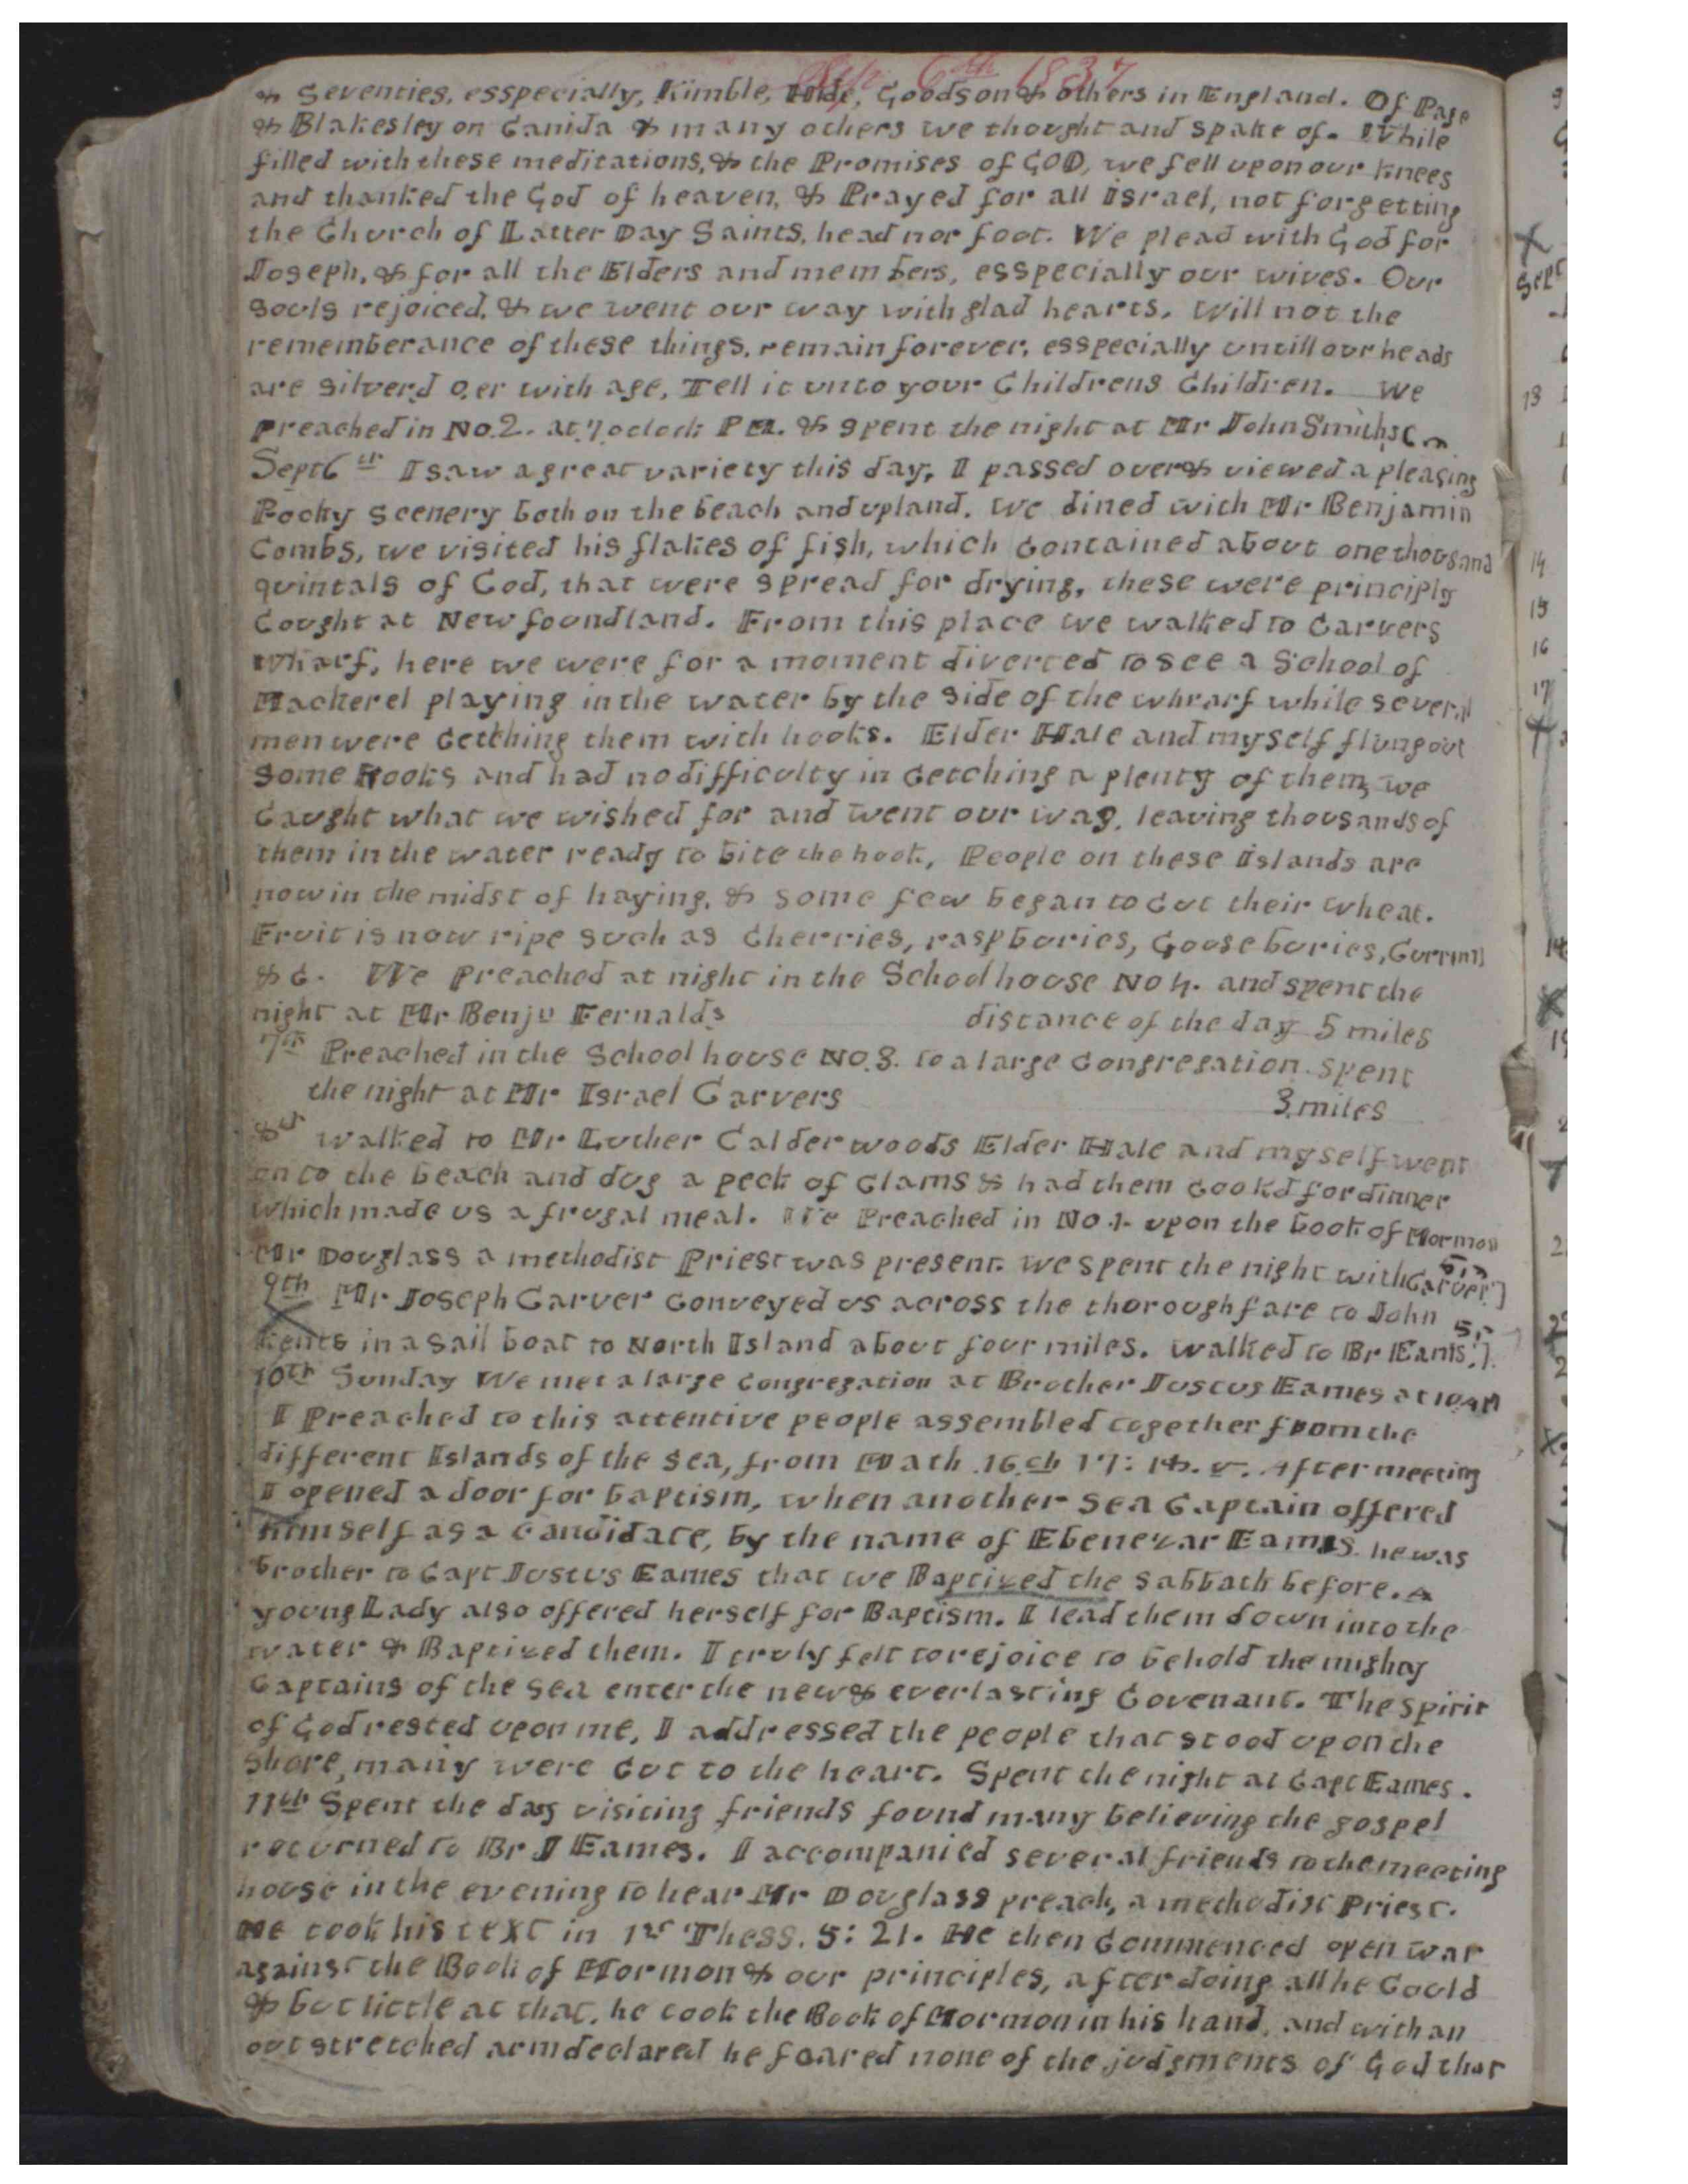 Sep 6th 1837
& Seventies, esspecially, Kimble, Hide, Goodson & others in England. Of Page
& Blakesley on Canida & many others we thought and spake of. While
filled with these meditations, & the Promises of GOD, we fell upon our knees
and thanked the God of heaven, & Prayed for all Israel, not forgetting
the Church of Latter Day Saints, head nor foot. We plead with God for
Joseph, & for all the Elders and members, esspecially our wives. Our
Souls rejoiced, & we went our way with glad hearts. Will not the
rememberance of these things, remain forever, esspecially untill our heads
are silver,d o,er with age, Tell it unto your Childrens Children. We
preached in No. 2. at 7 oclock PM. & spent the night at Mr John Smiths 6 m
Sept 6th I saw a great variety this day, I passed over & viewed a pleasing
Rocky Scenery both on the beach and upland. We dined with Mr Benjamin
Combs, we visited his flakes of fish, which contained about one thousand
quintals of Cod, that were spread for drying, these were principly
Cought at Newfoundland. From this place we walked to Carvers
Wharf, here we were for a moment diverted to see a School of
Mackerel playing in the water by the side of the whrarf while several
men were Cetching them with hooks. Elder Hale and myself flung out
Some Hooks and had no difficulty in Cetching a plenty of them, we
Caught what we wished for and went our way, leaving thousands of
them in the water ready to bite the hook, People on these Islands are
now in the midst of haying, & some few began to Cut their wheat.
Fruit is now ripe such as Cherries, raspburies, Gooseburies, Currint]
&c. We preached at night in the School house No 4. and spent the
night at Mr Benju Fernalds distance of the day 5 miles
7th Preached in the School house No. 3. to a large Congregation. Spent
the night at Mr Israel Carvers 3, miles
8th walked to Mr Luther Calderwoods Elder Hale and myself went
on to the beach and dug a peck of Clams & had them Cook,d for dinner
which made us a frugal meal. We Preached in No 1. upon the book of Mormon
Mr Douglass a methodist Priest was present. We spent the night with Carver] 5, m
9th Mr Joseph Carver Conveyed us across the thoroughfare to John
Kents in a sail boat to North Island about four miles. walked to Br Eams,]. 5, m
10th Sunday We met a large Congregation at Brother Justus Eames at 10, AM
I Preached to this attentive people assembled together from the
different Islands of the Sea, from Math 16, ch 17: 18. v. After meeting
I opened a door for baptism, when another Sea Captain offered
himself as a Candidate, by the name of Ebenezar Eames he was
brother to Capt Justus Eames that we Baptized the Sabbath before. A
young Lady also offered herself for Baptism. I lead them down into the
water & Baptized them. I truly felt to rejoice to behold the mighty
Captains of the sea enter the new & everlasting Covenant. The spirit
of God rested upon me, I addressed the people that stood upon the
Shore, many were Cut to the heart. Spent the night at Capt Eames.
11th Spent the day visiting friends found many believing the gospel
returned to Br J Eames. I accompanied several friends to the meeting
house in the evening to hear Mr Douglass preach, a methodist Priest.
He took his text in 1st Thess. 5: 21. He then Commenced open war
against the Book of Mormon & our principles, after doing all he Could
& but little at that, he took the Book of Mormon in his hand, and with an
out stretched arm declared he feared none of the judgments of God that
Sept
13
14
15
16
17